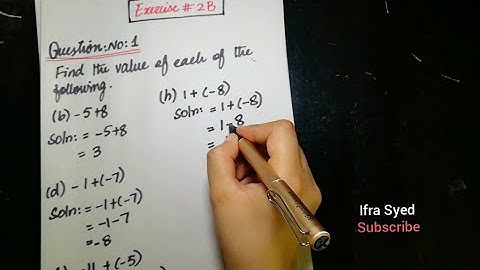 Exercise # 2B
Question:No:1
Find the value of each of the
following.
(b) -5+8
Soln: = -5+8
= 3
(d) -1+(-7)
Soln: = -1+(-7)
= -1-7
= -8
+(-5)
(h) 1+(-8)
Soln: = 1+(-8)
= 1-8
=
Ifra Syed
Subscribe